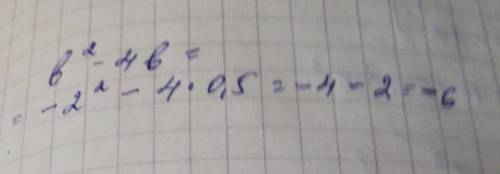 b² - 4b =
= -2² - 4 · 0,5 = -4 - 2 = -6